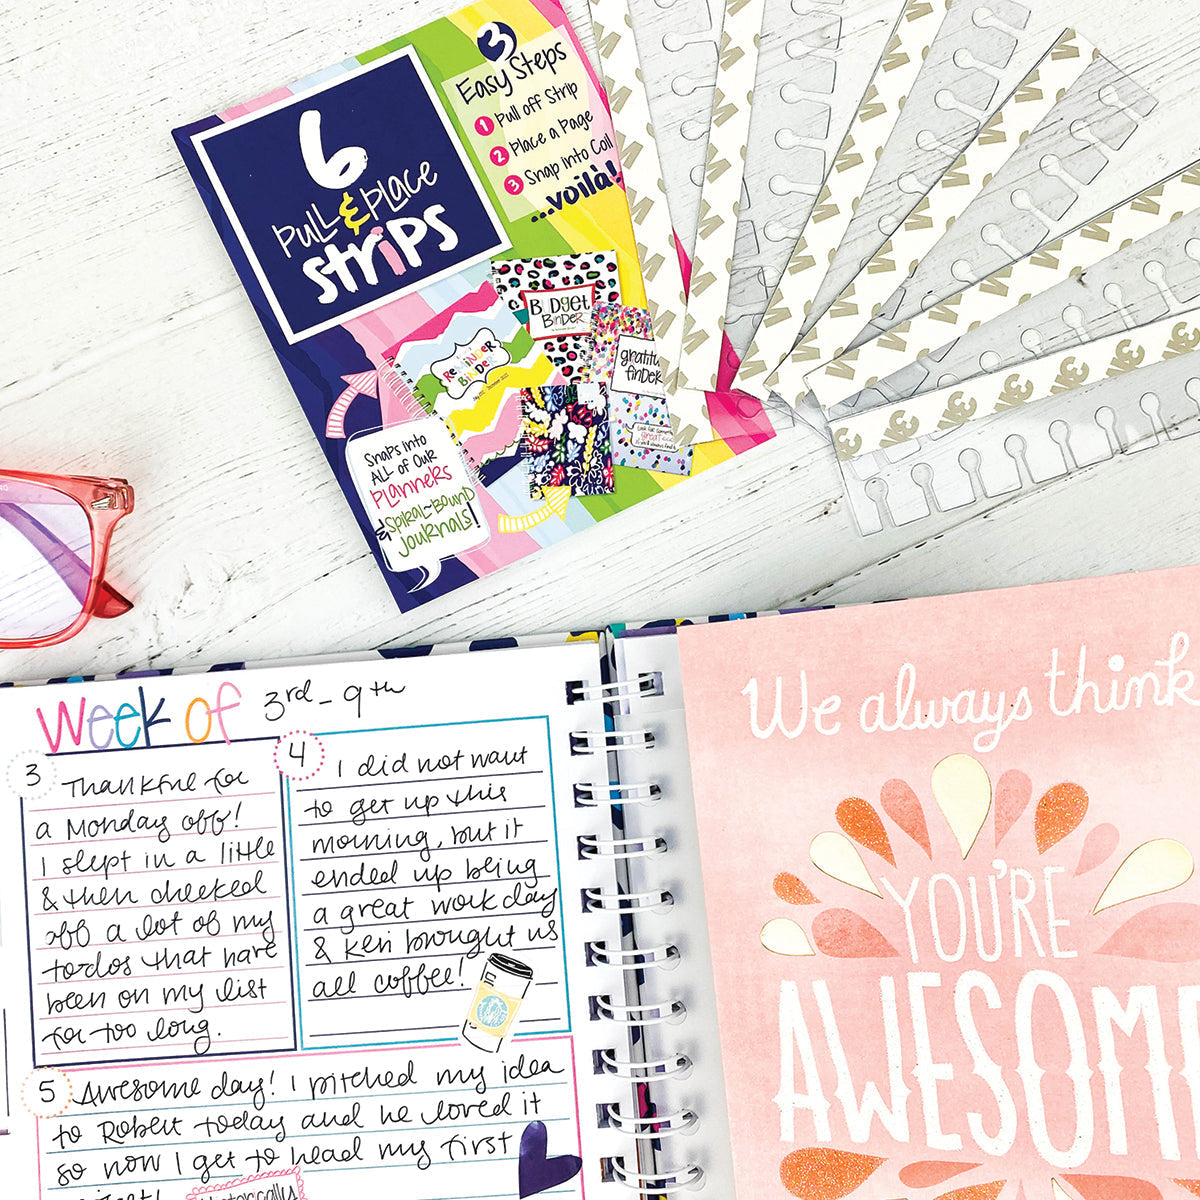 6
Pull & Place
strips
3
Easy Steps
1 Pull off Strip
2 Place a Page
3 Snap into Coil
...voilà!
Budget
Binder
Reminder
Binder
gratitu
finder
great
Snaps into
ALL of our
Planners
& Spiral-Bound
Journals!
3M
3M
3M
Week of 3rd - 9th
3
Thankful for
a Monday off!
I slept in a little
& then checked
off a lot of my
to-dos that have
been on my list
for too long.
4
I did not want
to get up this
morning, but it
ended up being
a great work day
& Keri brought us
all coffee!
5
Awesome day! I pitched my idea
to Robert today and he loved it
so now I get to head my first
Historically
We always think
YOU'RE
AWESOME